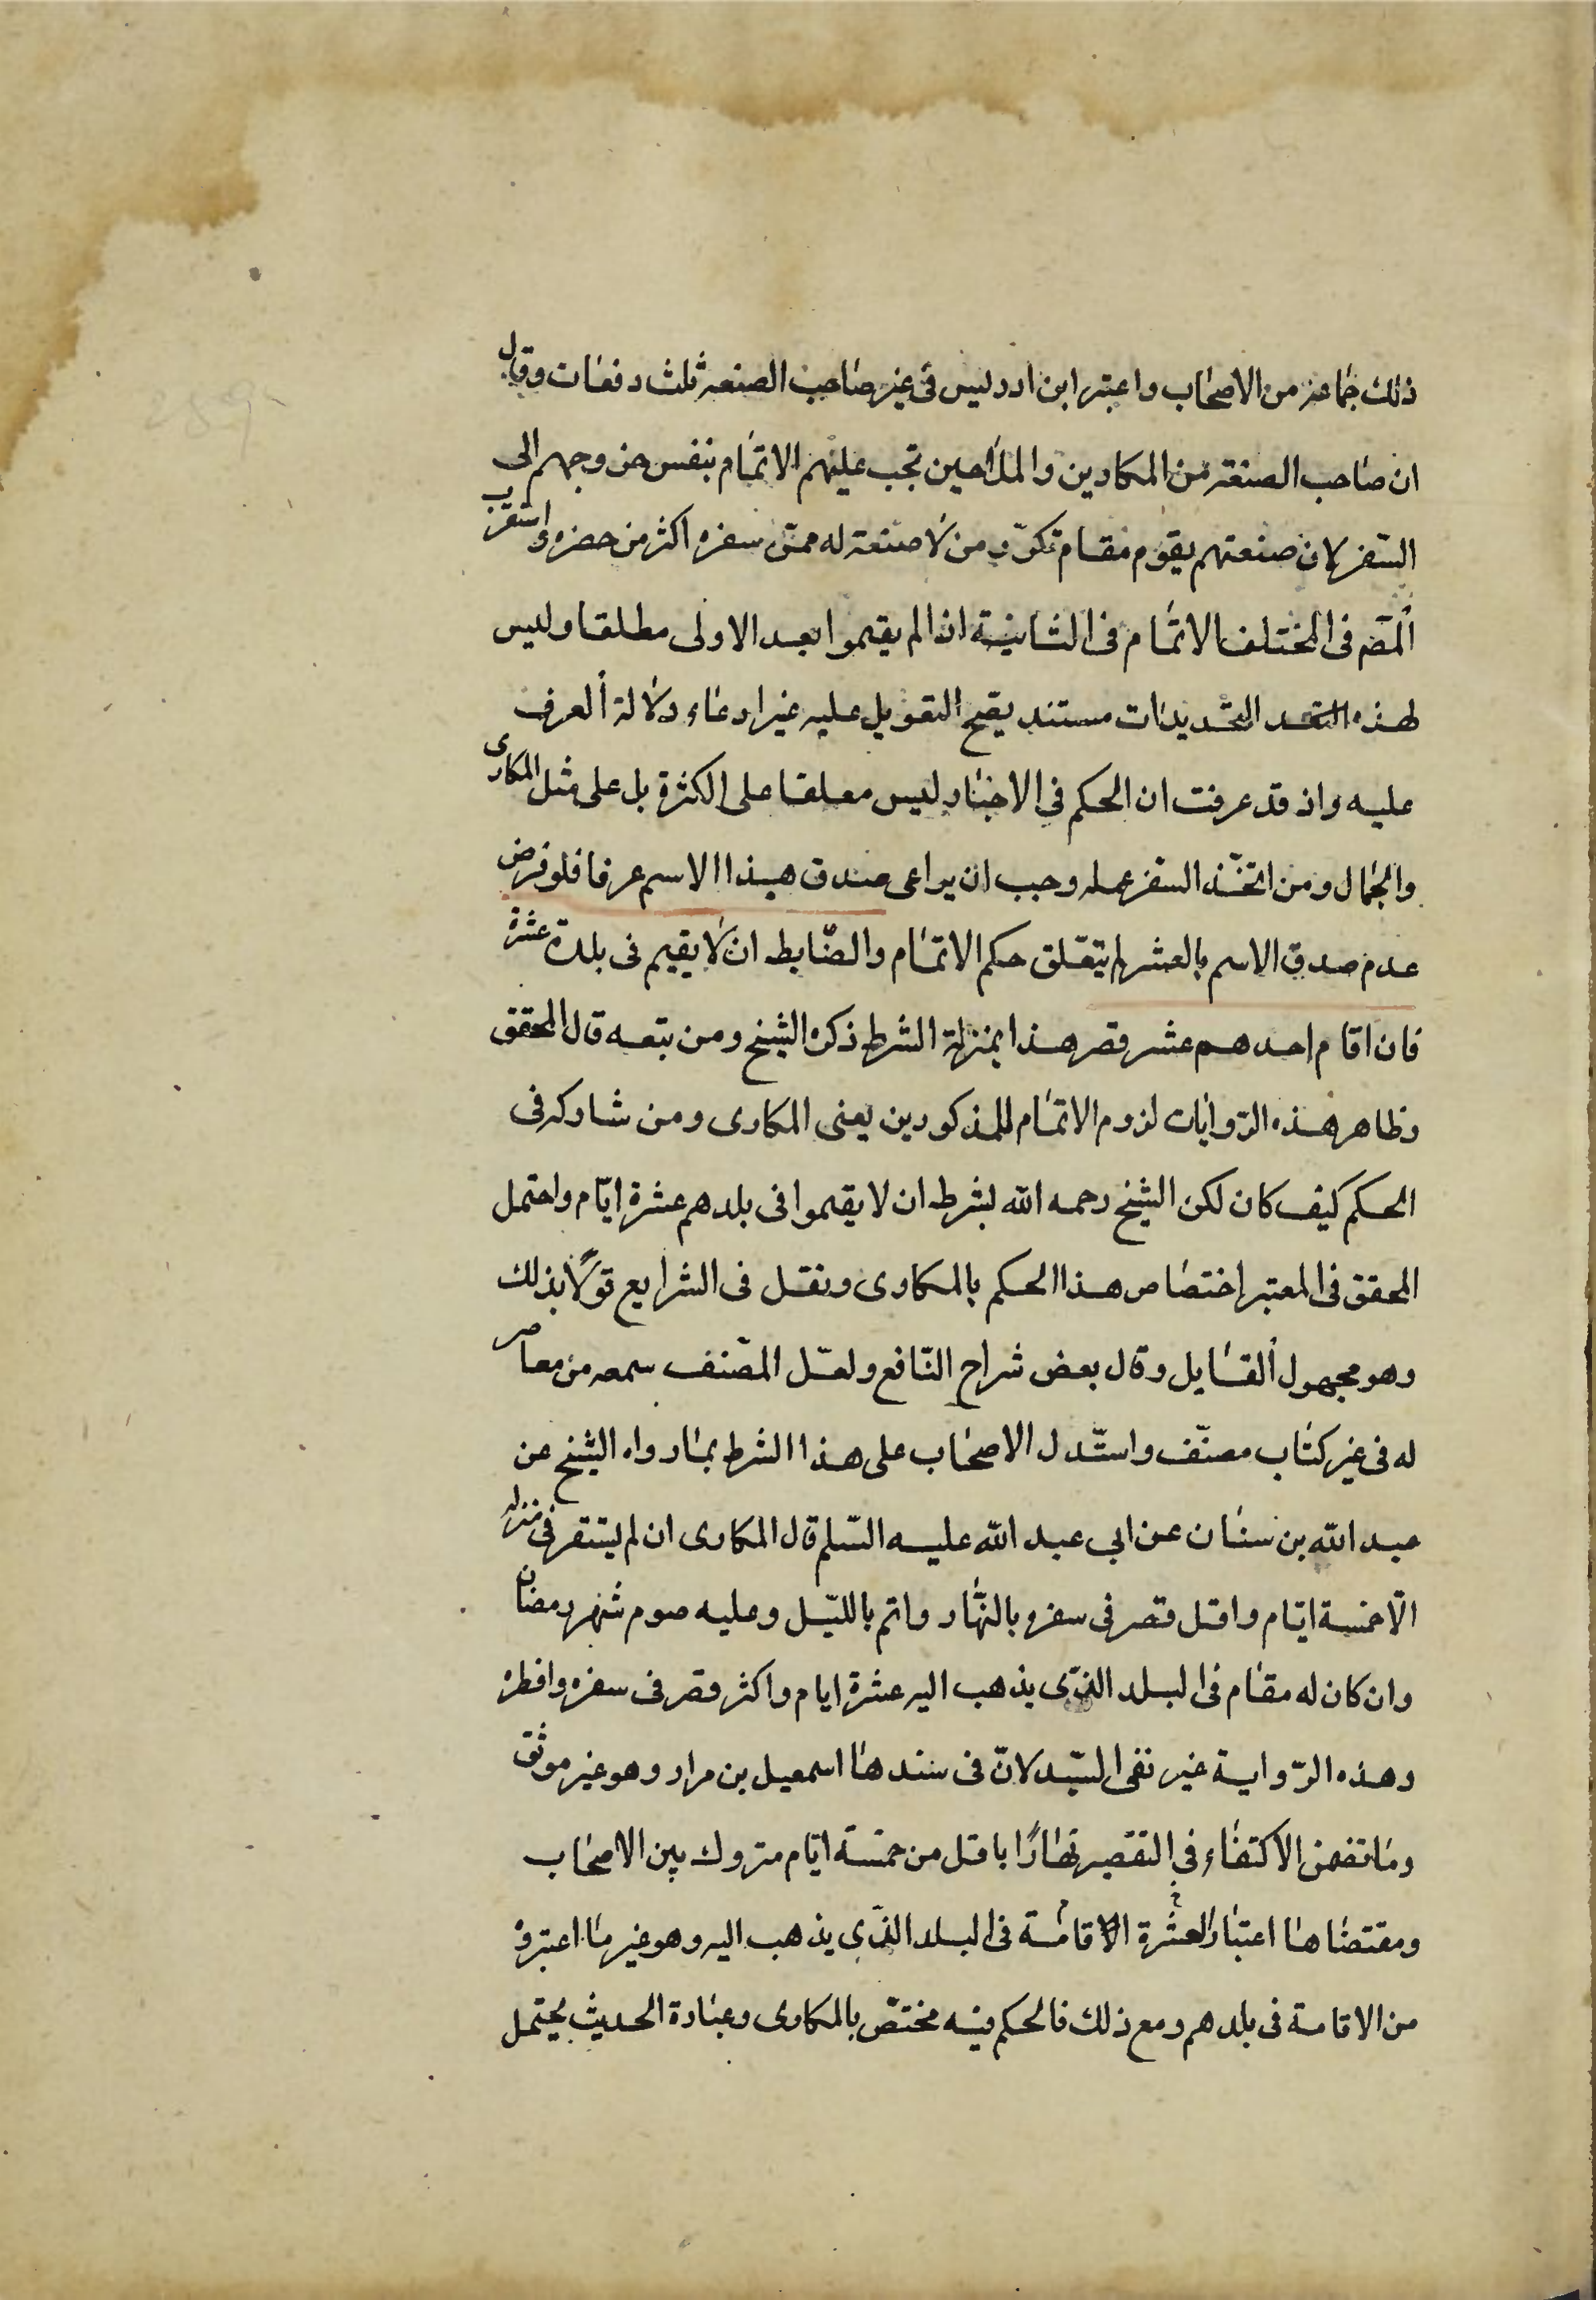 ذلك جماعة من الاصحاب واعتبر ابن ادريس فى غير صاحب الصنعة ثلث دفعات وقال
ان صاحب الصنعة من المكارين والملاحين تجب عليهم الاتمام بنفس خروجهم الى
السفر لان صنعتهم يقوم مقام تكرر من لا صنعة له ممن سفره اكثر من حضره واستقرب
المصّ فى المختلف الاتمام فى الثانية اذا لم يقيموا بعد الاولى مطلقا وليس
لهذه التحديدات مستند يصح التعويل عليه غير ادعاء دلالة العرف
عليه واذ قد عرفت ان الحكم فى الاخبار ليس معلقا على الكثرة بل على مثل المكارى
والجمال ومن اتخذ السفر عمله وجب ان يراعى صدق هذا الاسم عرفا فلو فرض
عدم صدق الاسم بالعشر لم يتعلق حكم الاتمام والضابط ان لا يقيم فى بلدة عشرة
فان اقام احدهم عشر قصر هذا بمنزلة الشرط ذكره الشيخ ومن تبعه قال المحقق
وظاهر هذه الروايات لزوم الاتمام للمذكورين يعنى المكارى ومن شاركه فى
الحكم كيف كان لكن الشيخ رحمه الله بشرط ان لا يقيموا فى بلدهم عشرة ايام واحتمل
المحقق فى المعتبر اختصاص هذا الحكم بالمكارى ونقل فى الشرايع قولا بذلك
وهو مجهول القايل وقال بعض شراح النافع ولعل المصنف سمعه من معاصر
له فى غير كتاب مصنّف واستدل الاصحاب على هذا الشرط بما رواه الشيخ عن
عبد الله بن سنان عن ابى عبد الله عليه السلم قال المكارى ان لم يستقر فى منزله
الا خمسة ايام واقل قصر فى سفره بالنهار واتم بالليل وعليه صوم شهر رمضان
وان كان له مقام فى البلد الذى يذهب اليه عشرة ايام واكثر قصر فى سفره وافطر
وهذه الرواية غير نقى السند لان فى سندها اسمعيل بن مرار وهو غير موثق
وما تضمن الاكتفاء فى التقصير نهارًا باقل من خمسة ايام متروك بين الاصحاب
ومقتضاها اعتبار العشرة الاقامة فى البلد الذى يذهب اليه وهو غير ما اعتبروه
من الاقامة فى بلدهم ومع ذلك فالحكم فيه مختص بالمكارى وعبارة الحديث يحتمل